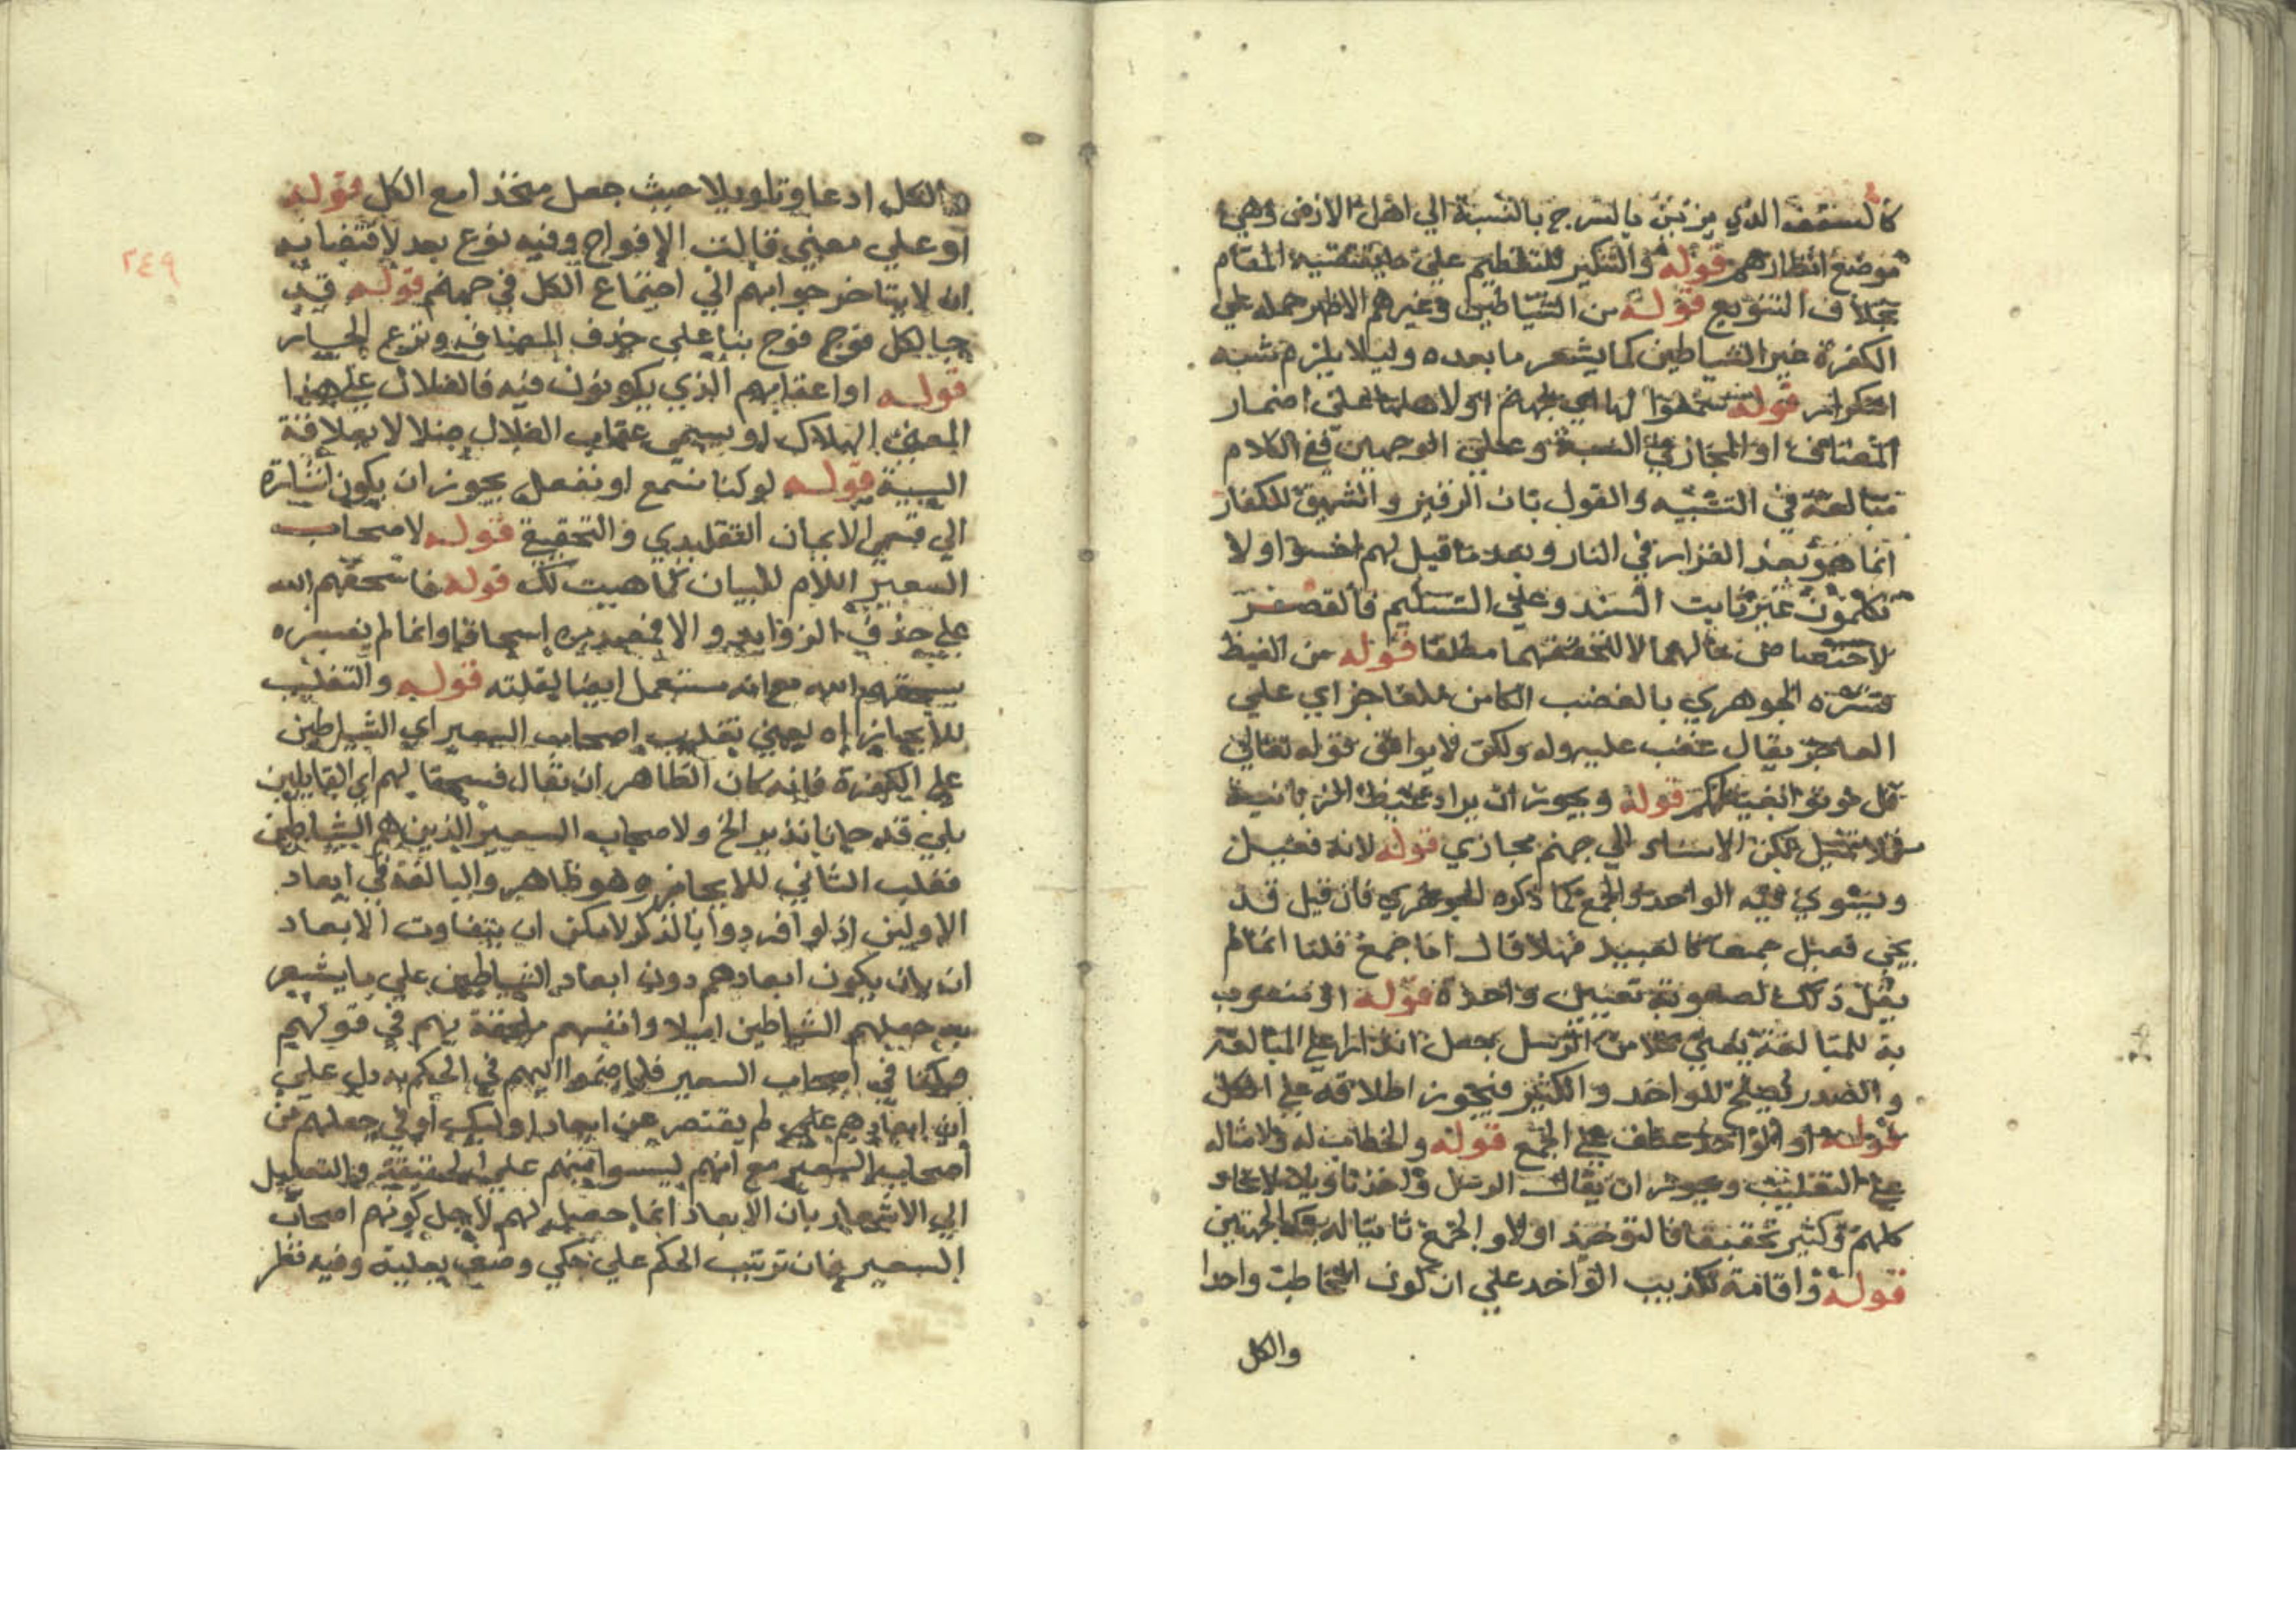 كالسقف الذي يزين بالسرج بالنسبة الي اهل الارض وهي
موضع انظارهم قوله والتنكير للتعظيم علي ما يقتضيه المقام
بخلاف التنويع قوله من الشياطين وغيرهم الاظهر حمله علي
الكفرة غير الشياطين كما يشعر ما بعده وليلا يلزم شبه
التكرار قوله سمعوا لها اي لجهنم اولاهلها علي اضمار
المضاف او المجاز في النسبة وعلي الوجهين ففي الكلام
مبالغة في التشبيه والقول بان الزفير والشهيق للكفار
انما هو بعد القرار في النار وبعد ما قيل لهم اخسوا ولا
تكلمون غير ثابت السند وعلي التسليم فالقصر
لاختصاص حالهما لا لتحققهما مطلقا قوله من الغيظ
فسره الجوهري بالغضب الكامن للعاجز اي علي
العاجز يقال غضب عليه وله ولكن لا يوافق قوله تعالي
قل موتوا بغيظكم قوله ويجوز ان يراد غيظ الزبانية
فلا تمثيل لكن الاسناد الي جهنم مجازي قوله لانه فعيل
ويستوي فيه الواحد والجمع كما ذكره الجوهري فان قيل قد
يجي فعيل جمعا كالعبيد فهلا قال اما جمع قلنا انما لم
يقل ذلك لصعوبة تعيين واحده قوله او منعوت
به للمبالغة يعني كلا من الرسل بجعل انذارا علي المبالغة
والمصدر يصلح للواحد والكثير فيجوز اطلاقه علي الكل
قوله او الواحد عطف علي الجمع قوله والخطاب له ولامثاله
علي التغليب ويجوز ان يقال الرسل واحد تاويلا لاتحاد
كلمهم وكثير تحقيقا فالتوحيد اولا والجمع ثانيا له الجهتين
قوله واقامة تكذيب الواحد علي ان يكون المخاطب واحدا
والكل
٢٤٩
والكل ادعا وتاويلا حيث جعل متحدا مع الكل قوله
او علي معني قالت الافواج وفيه نوع بعد لاقتضايه
ان لا يتاخر جوابهم الي اجتماع الكل في جهنم قوله قد
جا لكل فوج فوج بنا علي حذف المضاف ونزع الجار
قوله او اعقابهم الذي يكونون فيه فالضلال علي هذا
المعني الهلاك او يسمي عقاب الضلال ضلالا بعلاقة
السببية قوله لو كنا نسمع او نعقل يجوز ان يكون اشارة
الي قسمي الايمان التقليدي والتحقيق قوله لاصحاب
السعير اللام للبيان كما هيت لك قوله فاسحقهم الله
علي حذف الزوايد والا فمصدره اسحاقا وانما لم يفسره
بسحقهم الله مع انه مستعمل ايضا لقلته قوله والتغليب
للايجاز اه يعني تغليب اصحاب السعير اي الشياطين
علي الكفرة فانه كان الظاهر ان يقال فسحقا لهم اي القايلين
بلي قد جانا نذير الخ ولاصحاب السعير الذين هم الشياطين
فغلب الثاني للايجاز وهو ظاهر والمبالغة في ابعاد
الاولين اذ لو افردوا بالذكر لامكن ان يتفاوت الابعاد
ان بان يكون ابعادهم دون ابعاد الشياطين علي ما يشعر
به جعلهم الشياطين اصلا وانفسهم ملحقة بهم في قولهم
ما كنا في اصحاب السعير فلما ضموا اليهم في الحكم به دل علي
ان ابعادهم لم يقتصر عن ابعاد اوليك او في جعلهم من
اصحاب السعير مع انهم ليسوا منهم علي الحقيقة والتعليل
الي الاشعار بان الابعاد انما حصل لهم لاجل كونهم اصحاب
السعير فان ترتيب الحكم علي وصف بعلية وفيه نظر